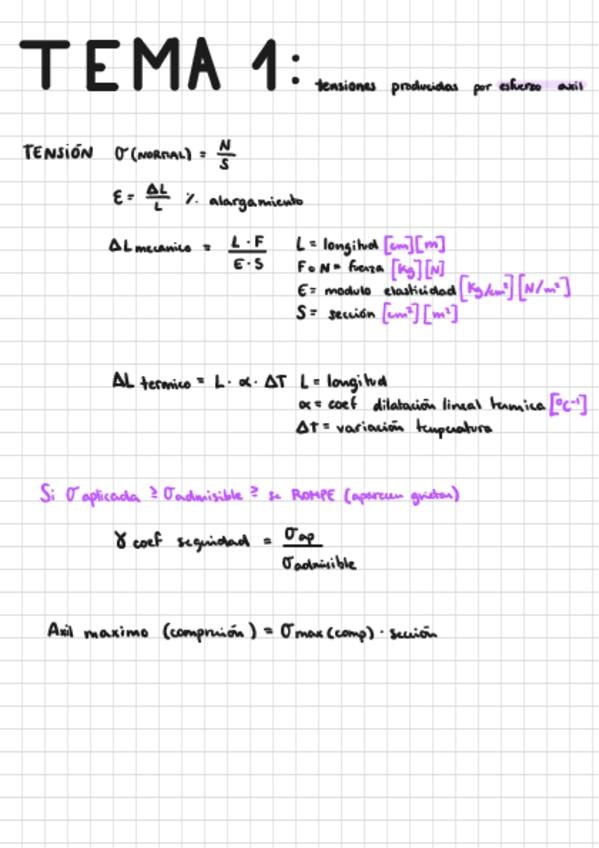 TEMA 1: tensiones producidas por esfuerzo axil
TENSIÓN σ (NORMAL) = N/S
ε = ΔL/L % alargamiento
ΔL mecanico = L · F / E · S
L = longitud [cm][m]
F o N = fuerza [kg][N]
E = modulo elasticidad [kg/cm²][N/m²]
S = sección [cm²][m²]
ΔL termico = L · α · ΔT L = longitud
α = coef dilatación lineal termica [°C⁻¹]
ΔT = variación temperatura
Si σ aplicada ≥ σ admisible ≥ se ROMPE (aparecen grietas)
γ coef seguridad = σap / σadmisible
Axil maximo (compresión) = σ max (comp) · sección